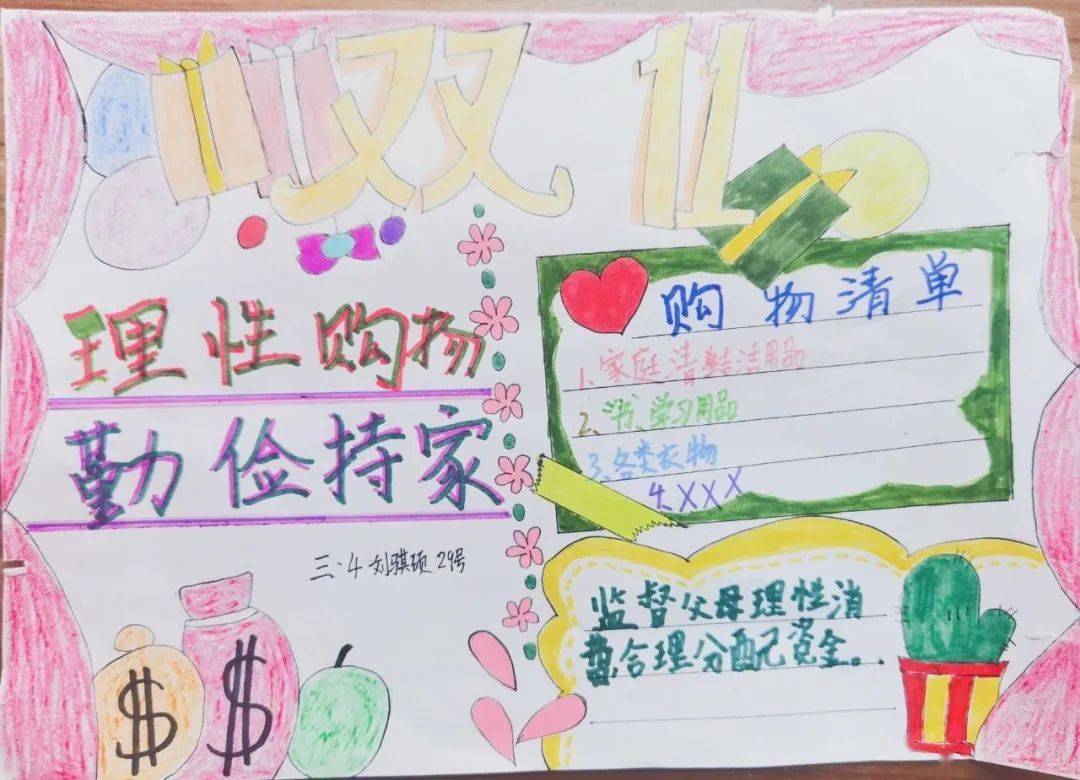 双 11
理性购物
勤俭持家
三.4 刘骐硕 29号
购物清单
1、家庭清洁用品
2、书、学习用品
3、各类衣物
4.XXX
监督父母理性消
费合理分配资金。
$ $